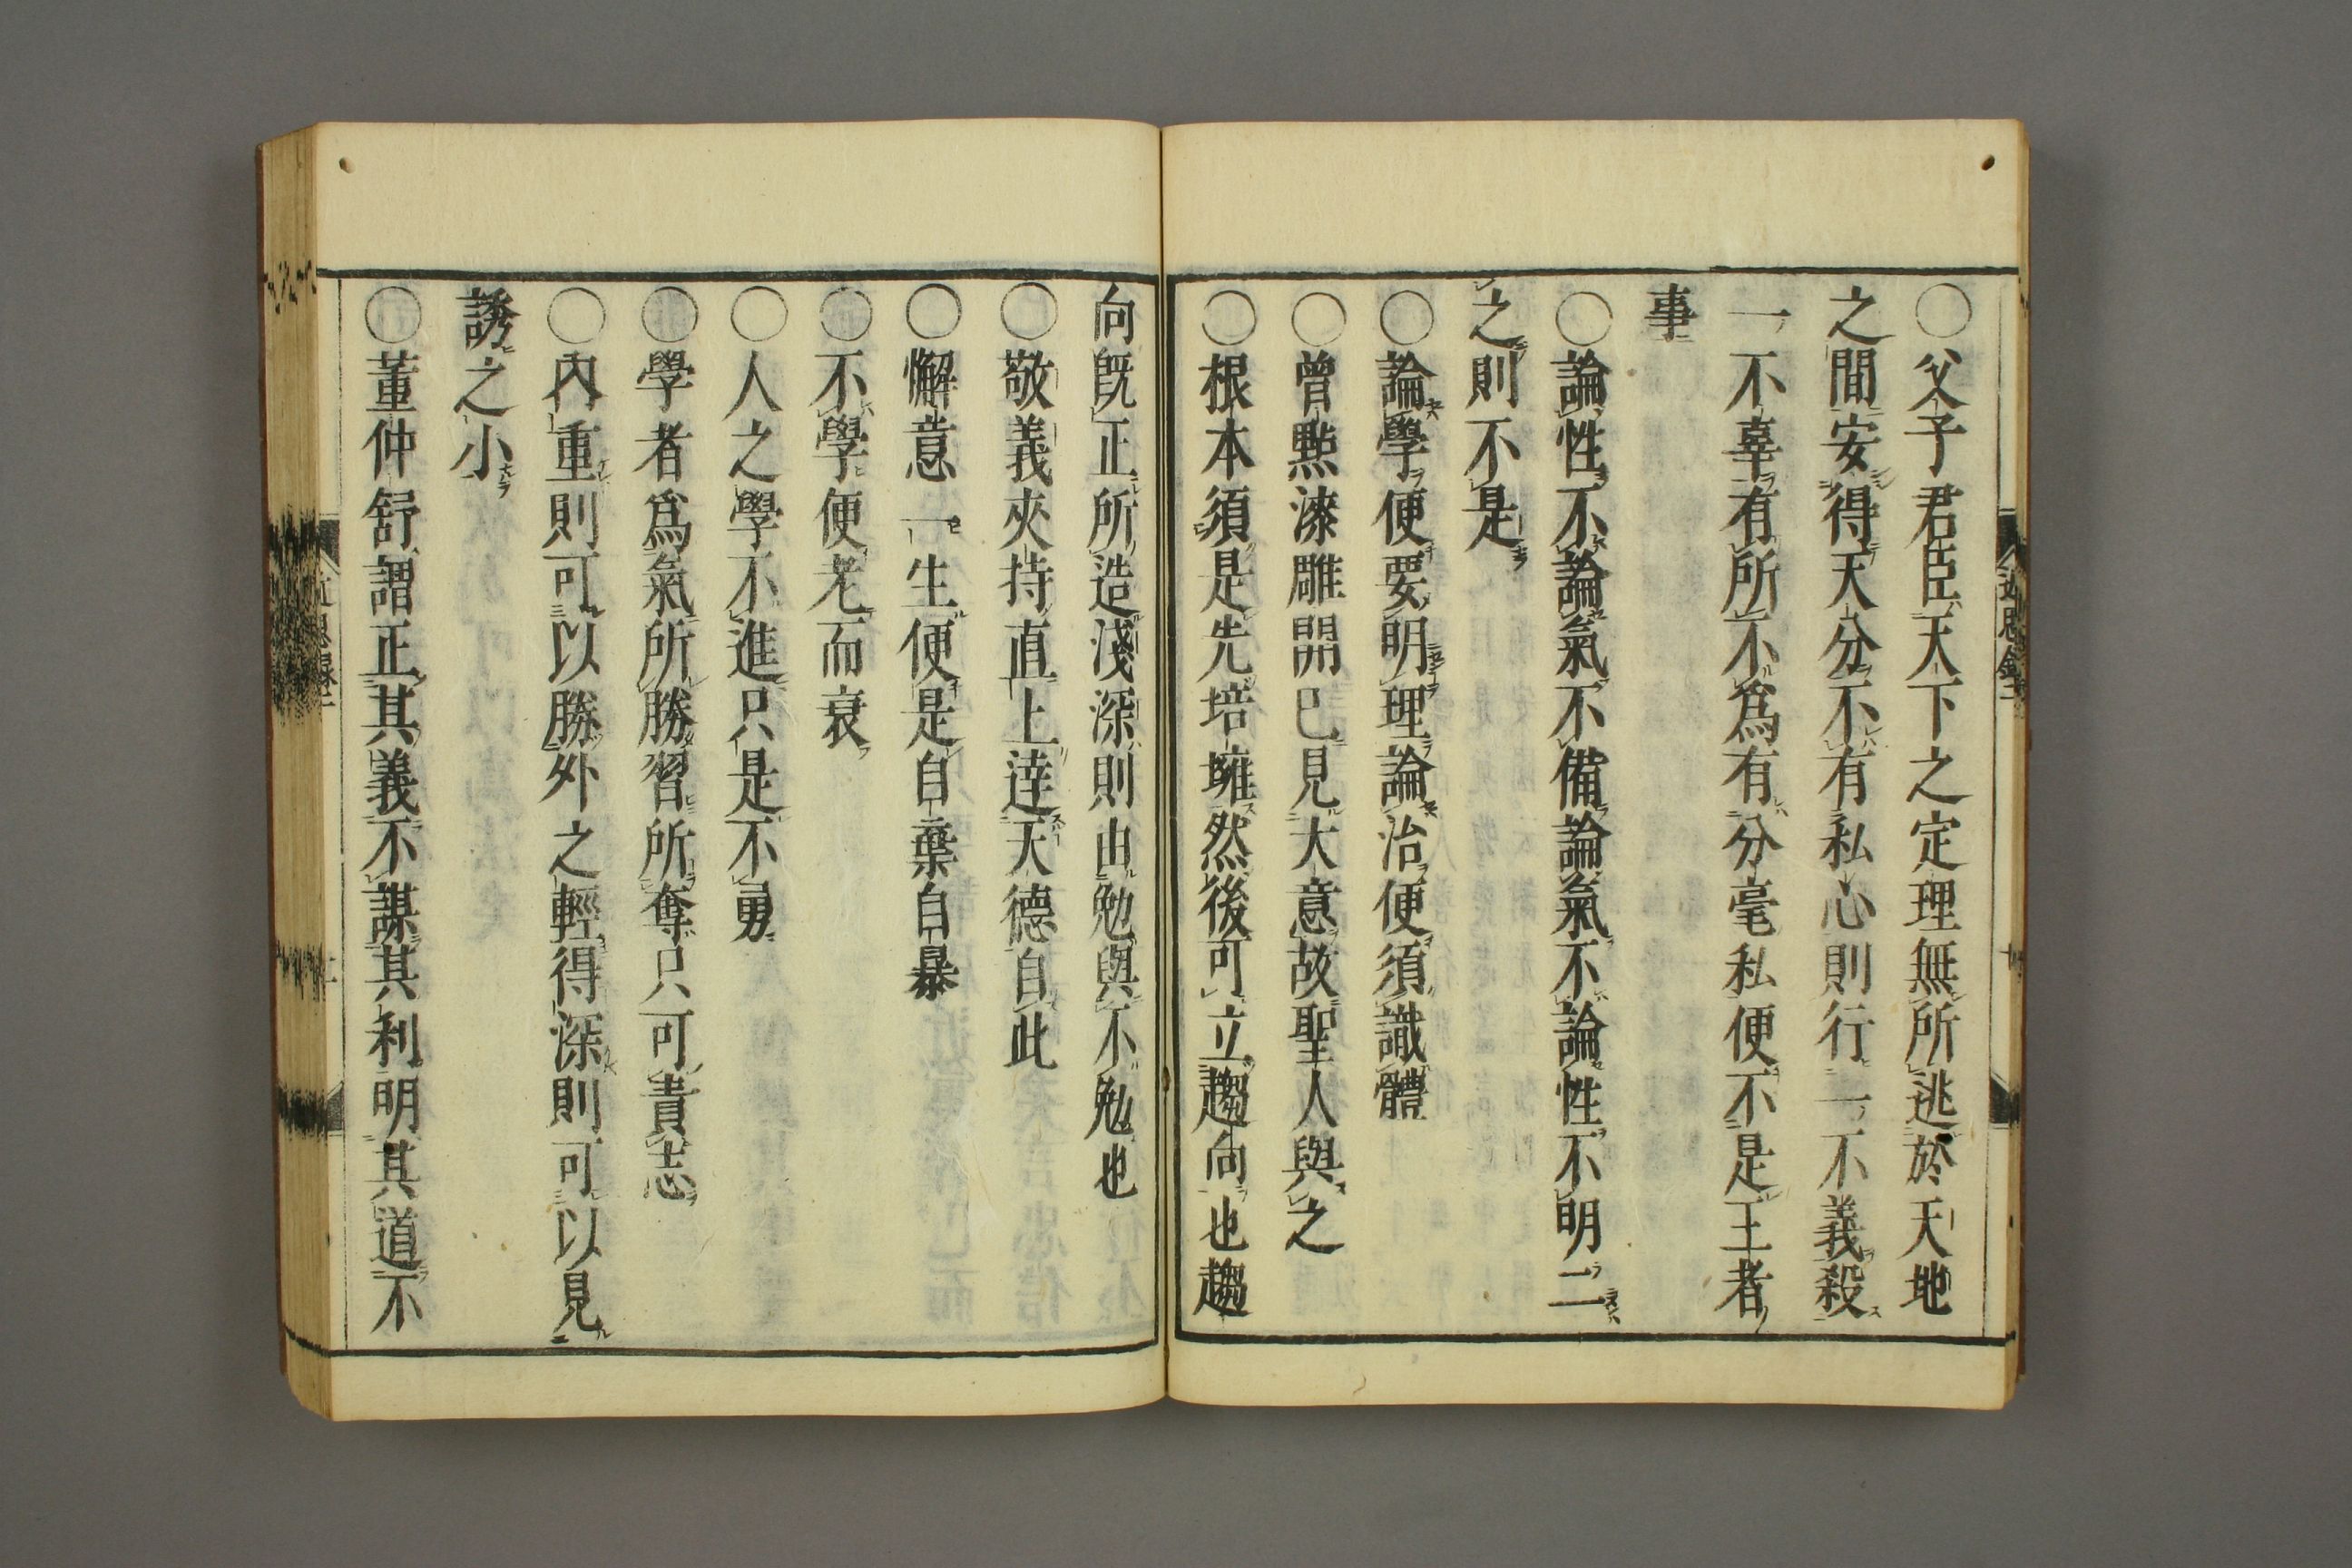 〇父子君臣天下之定理無所逃於天地
之間安得天分不有私心則行一不義殺
一不辜有所不爲有分毫私便不是王者
事
〇論性不論氣不備論氣不論性不明二
之則不是
〇論學便要明理論治便須識體
〇曾點漆雕開已見大意故聖人與之
〇根本須是先培壅然後可立趨向也趨
向既正所造淺深則由勉與不勉也
〇敬義夾持直上達天德自此
〇懈意一生便是自棄自暴
〇不學便老而衰
〇人之學不進只是不勇
〇學者爲氣所勝習所奪只可責志
〇內重則可以勝外之輕得深則可以見
誘之小
〇董仲舒謂正其義不謀其利明其道不
近思錄二